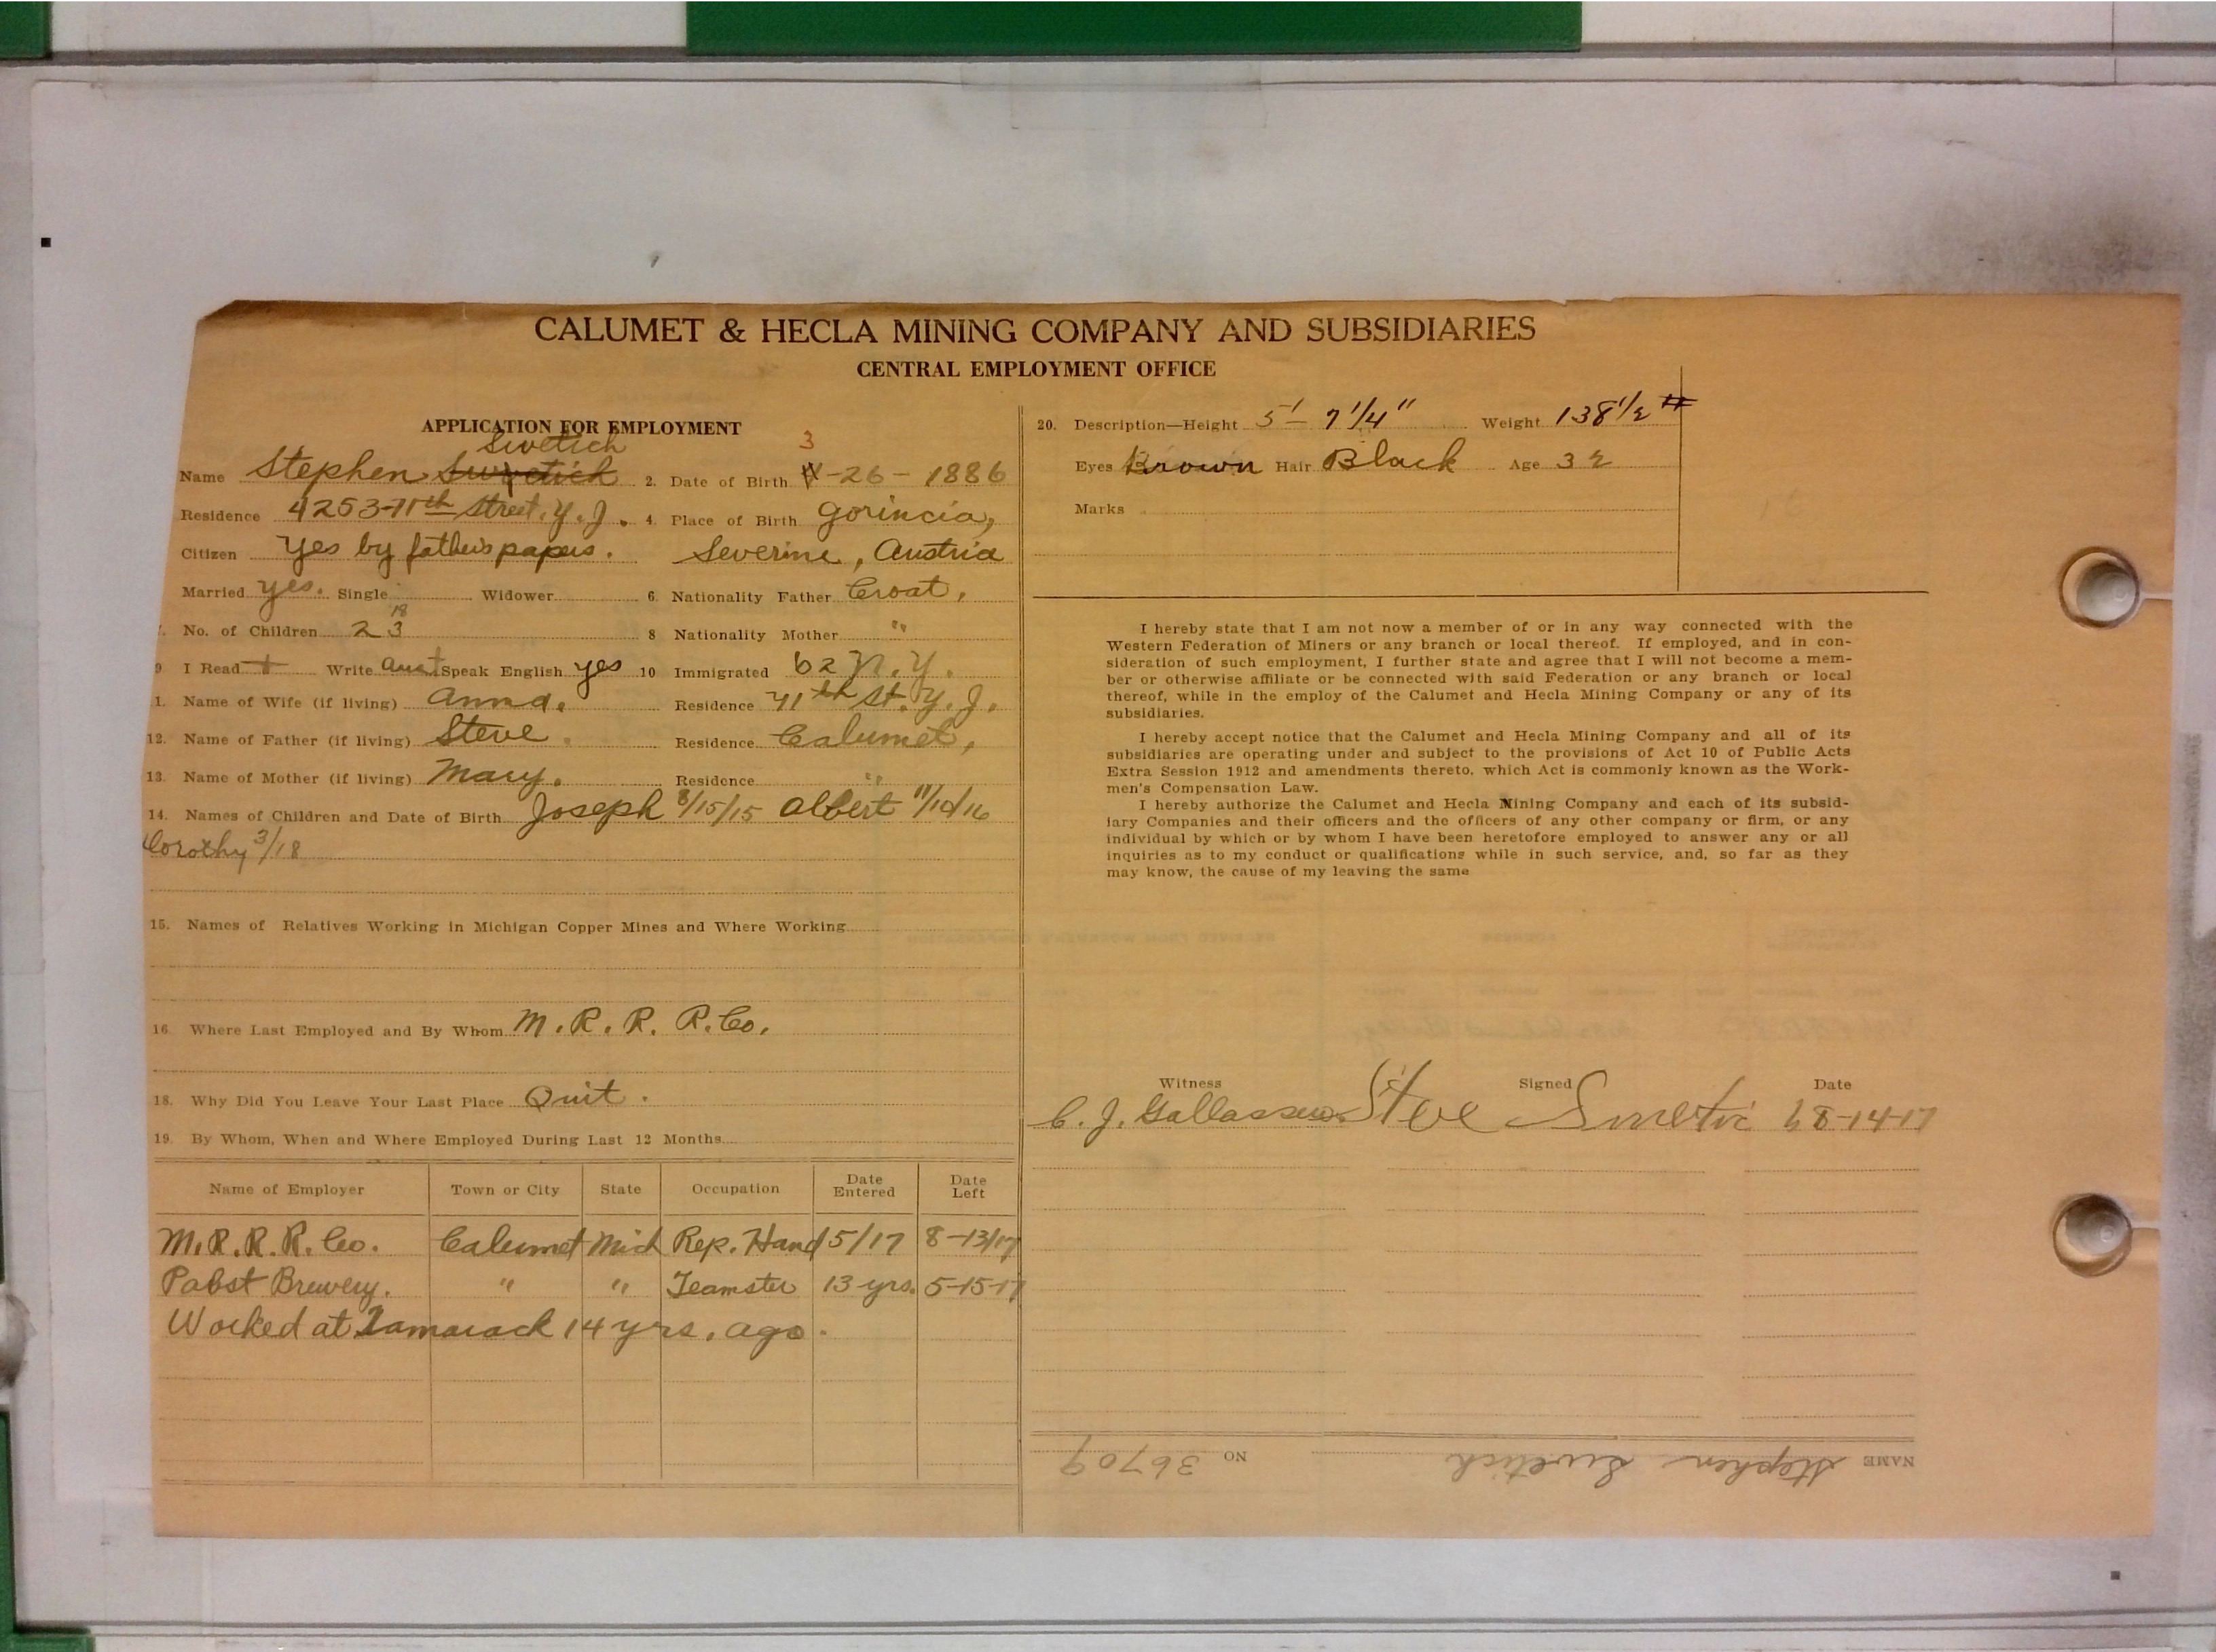 CALUMET & HECLA MINING COMPANY AND SUBSIDIARIES
CENTRAL EMPLOYMENT OFFICE
APPLICATION FOR EMPLOYMENT
Swetich
Name Stephen 2. Date of Birth 3-26-1886
Residence 4253-71th Street. Y. J. 4. Place of Birth Gorincia,
Citizen Yes by father's papers. Severine, Austria
Married yes. Single Widower 6. Nationality Father Croat,
18
7. No. of Children 2 3 8 Nationality Mother "
9 I Read + Write Aust Speak English yes 10 Immigrated 02 N. Y.
1. Name of Wife (if living) Anna. Residence 71th St. Y. J.
12. Name of Father (if living) Steve Residence Calumet,
13. Name of Mother (if living) Mary. Residence "
14. Names of Children and Date of Birth Joseph 8/15/15 Albert 11/10/16
Dorothy 3/18
15. Names of Relatives Working in Michigan Copper Mines and Where Working
16 Where Last Employed and By Whom M. R. R. R. Co.
18. Why Did You Leave Your Last Place Quit.
19. By Whom, When and Where Employed During Last 12 Months
Name of Employer Town or City State Occupation Date Entered Date Left
M. R. R. R. Co. Calumet Mich Rep. Hand 5/17 8-13/17
Pabst Brewery. " " Teamster 13 yrs. 5-15-17
Worked at Tamarack 14 yrs. ago.
20. Description—Height 5'- 7 1/4" Weight 138 1/2 #
Eyes Brown Hair Black Age 32
Marks
I hereby state that I am not now a member of or in any way connected with the
Western Federation of Miners or any branch or local thereof. If employed, and in con-
sideration of such employment, I further state and agree that I will not become a mem-
ber or otherwise affiliate or be connected with said Federation or any branch or local
thereof, while in the employ of the Calumet and Hecla Mining Company or any of its
subsidiaries.
I hereby accept notice that the Calumet and Hecla Mining Company and all of its
subsidiaries are operating under and subject to the provisions of Act 10 of Public Acts
Extra Session 1912 and amendments thereto, which Act is commonly known as the Work-
men's Compensation Law.
I hereby authorize the Calumet and Hecla Mining Company and each of its subsid-
iary Companies and their officers and the officers of any other company or firm, or any
individual by which or by whom I have been heretofore employed to answer any or all
inquiries as to my conduct or qualifications while in such service, and, so far as they
may know, the cause of my leaving the same
Witness Signed Date
C. J. Steve 8-14-17
NAME Stephen Swetich NO 36709